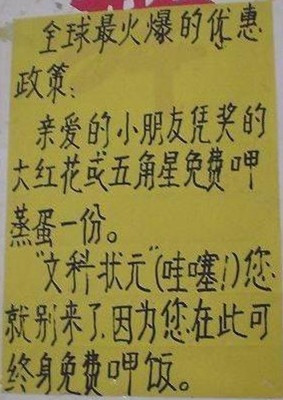 全球最火爆的优惠
政策：
亲爱的小朋友凭奖的
大红花或五角星免费呷
蒸蛋一份。
“文科状元”(哇噻!)您
就别来了,因为您在此可
终身免费呷饭。